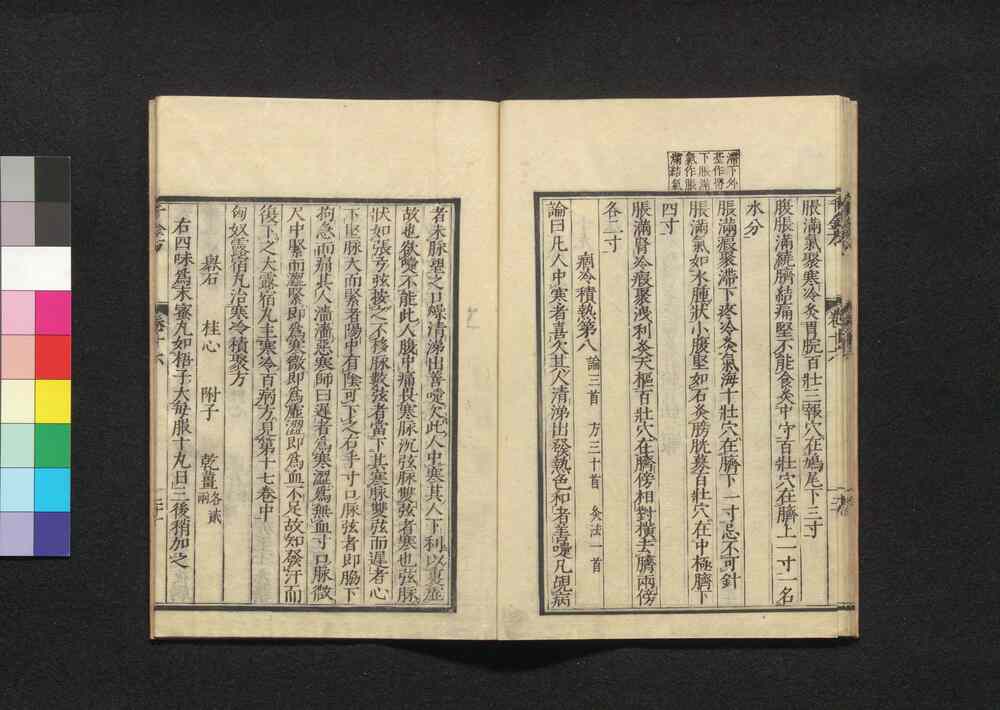 滯下外
臺作臍
下脹滿
氣作脹
痛結氣
脹滿氣聚寒冷灸胃脘百壯三報穴在鳩尾下三寸
腹脹滿繞臍結痛堅不能食灸中守百壯穴在臍上一寸一名
水分
脹滿瘕聚滯下疼冷灸氣海十壯穴在臍下一寸忌不可針
脹滿氣如水腫狀小腹堅如石灸膀胱募百壯穴在中極臍下
四寸
脹滿腎冷瘕聚洩利灸天樞百壯穴在臍傍相對橫去臍兩傍
各二寸
痼冷積熱第八 論三首 方三十首 灸法一首
論曰凡人中寒者喜欠其人清涕出發熱色和者善嚏凡覘病
者未脉望之口燥清涕出善嚏欠此人中寒其人下利以裏虛
故也欲嚏不能此人腹中痛畏寒脉沉弦脉雙弦者寒也弦脉
狀如張弓弦按之不移脉數弦者當下其寒脉雙弦而遲者心
下堅脉大而緊者陽中有陰可下之右手寸口脉弦者即脇下
拘急而痛其人濇濇惡寒師曰遲者爲寒澀爲無血寸口脉微
尺中緊而澀緊即爲寒微即爲虛澀即爲血不足故知發汗而
復下之大露宿丸主寒冷百病方見第十七卷中
匈奴露宿丸治寒冷積聚方
礜石 桂心 附子 乾薑各貳兩
右四味爲末蜜丸如梧子大每服十丸日三後稍加之